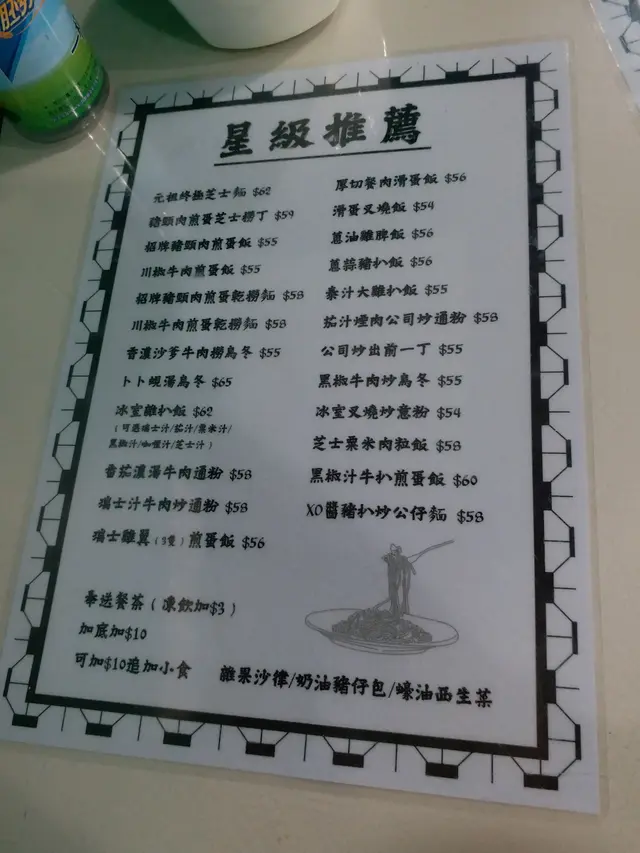 星級推薦
元祖終極芝士麵 $62
豬頸肉煎蛋芝士撈丁 $59
招牌豬頸肉煎蛋飯 $55
川椒牛肉煎蛋飯 $55
招牌豬頸肉煎蛋乾撈麵 $58
川椒牛肉煎蛋乾撈麵 $58
香濃沙爹牛肉撈烏冬 $55
卜卜蜆湯烏冬 $65
冰室雞扒飯 $62
(可選瑞士汁/茄汁/粟米汁/
黑椒汁/咖喱汁/芝士汁)
香茄濃湯牛肉通粉 $58
瑞士汁牛肉炒通粉 $58
瑞士雞翼(3隻)煎蛋飯 $56
厚切餐肉滑蛋飯 $56
滑蛋叉燒飯 $54
蔥油雞脾飯 $56
蔥蒜豬扒飯 $56
泰汁大雞扒飯 $55
茄汁煙肉公司炒通粉 $58
公司炒出前一丁 $55
黑椒牛肉炒烏冬 $55
冰室叉燒炒意粉 $54
芝士粟米肉粒飯 $58
黑椒汁牛扒煎蛋飯 $60
XO醬豬扒炒公仔麵 $58
奉送餐茶(凍飲加$3)
加底加$10
可加$10追加小食 雜果沙律/奶油豬仔包/蠔油西生菜